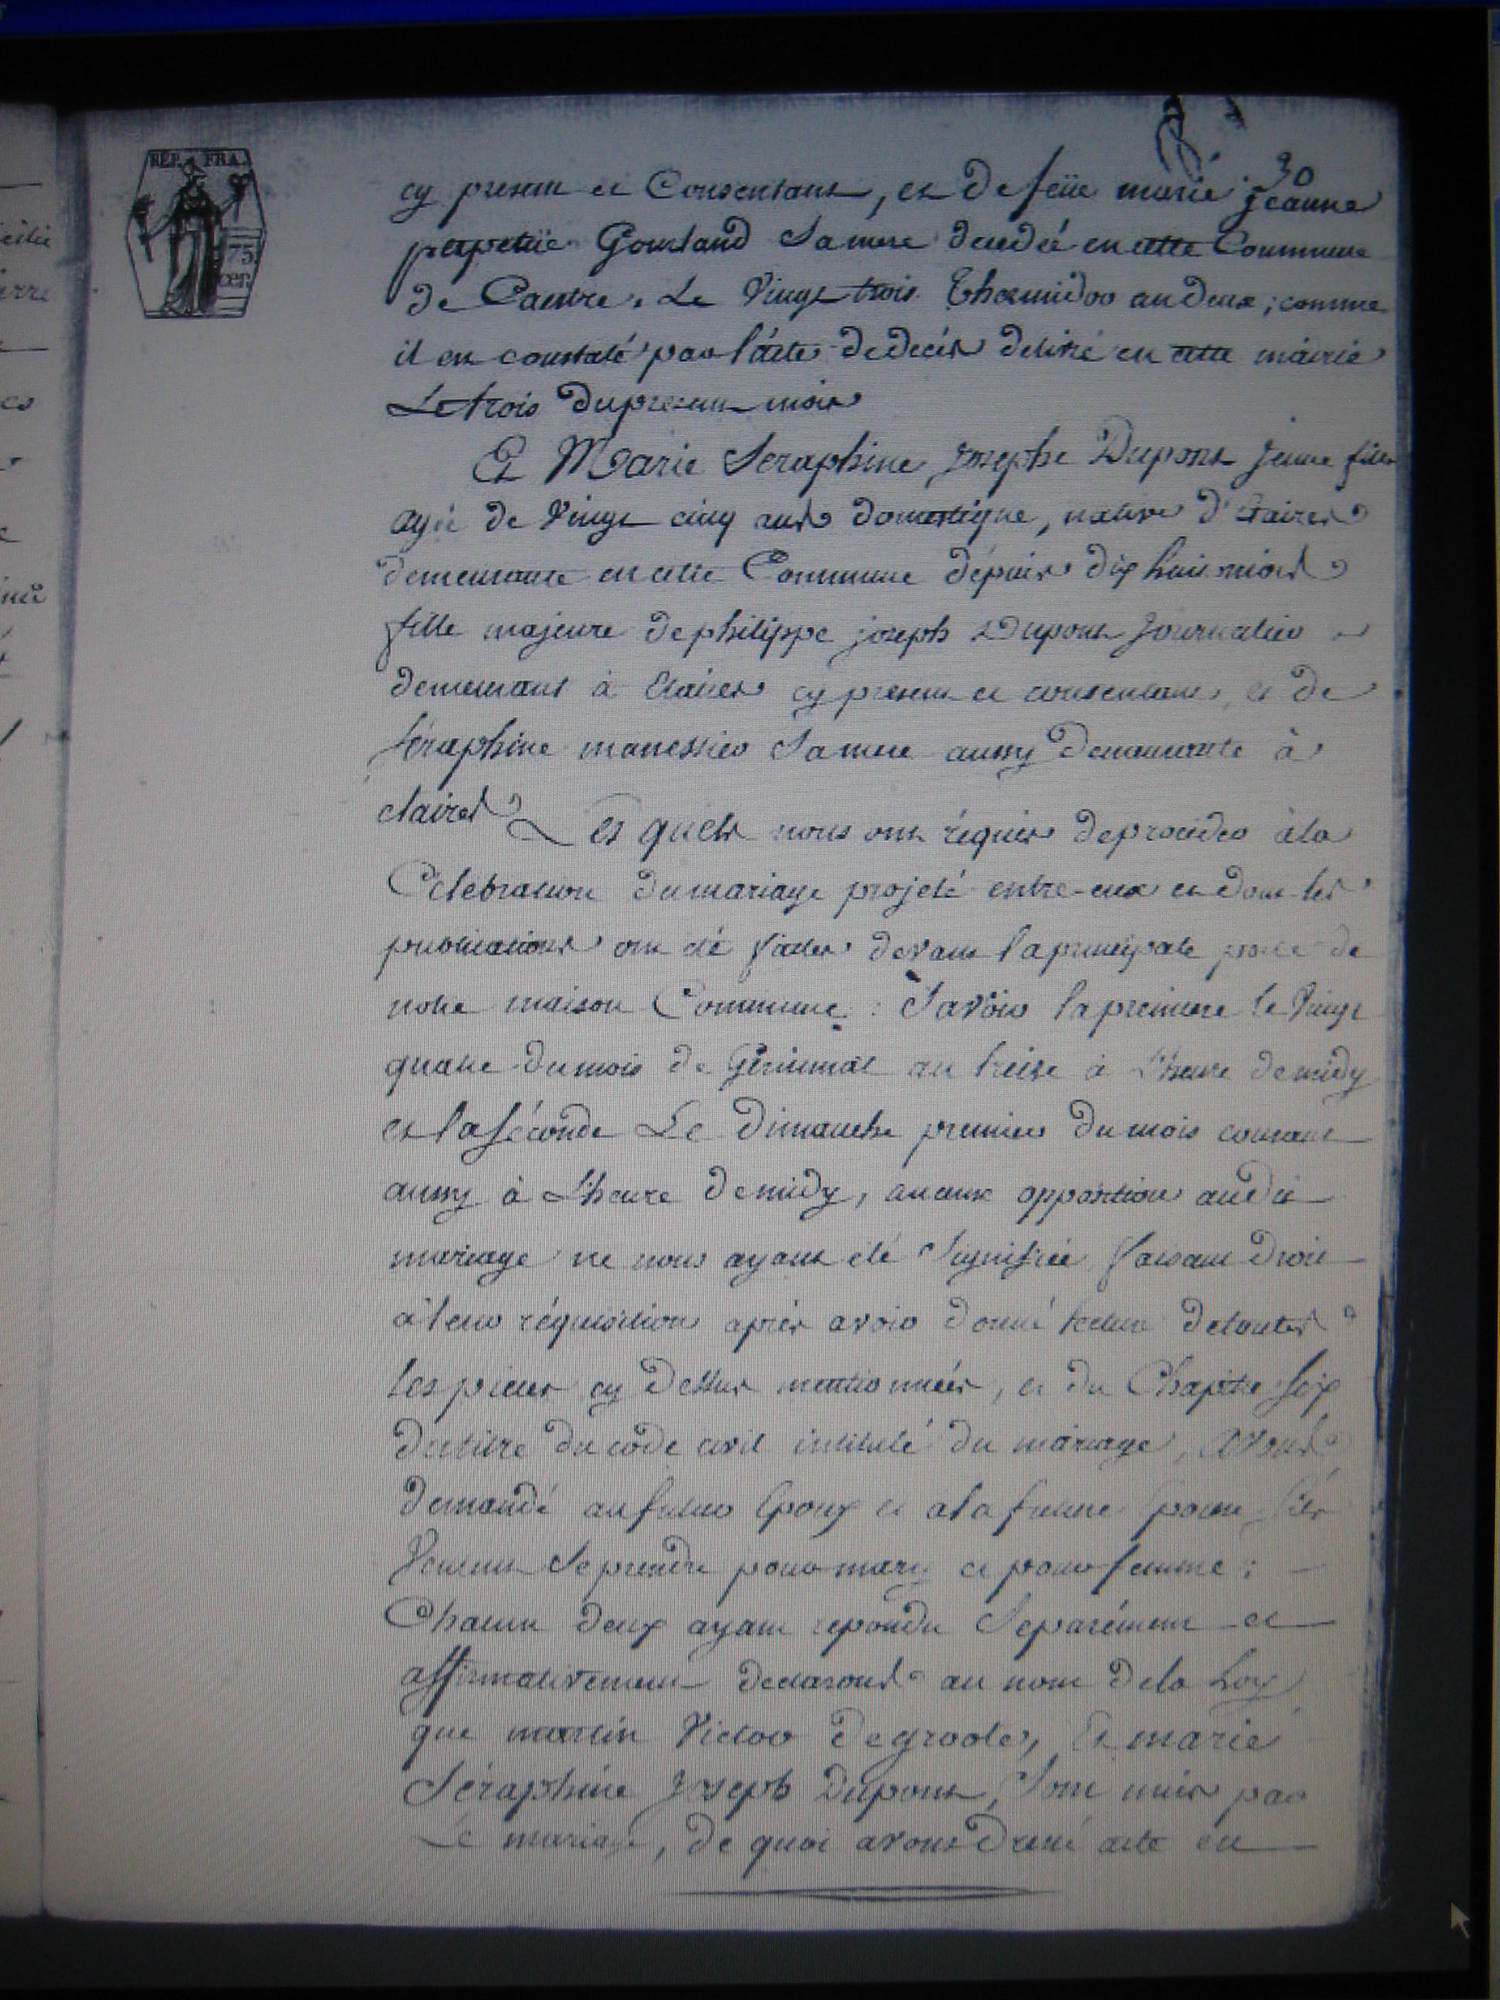 REP. FRA.
75
cen.
30
cy présent et Consentant, et de feüe marie jeanne
perpetüe Gourland Sa mere decedée en cette Commune
de Le Vingt trois Thermidor an deux, comme
il en constaté par l'acte de decès delivré en cette mairie
Le trois du présent mois
Et Marie Seraphine Josephe Dupont jeune fille
agée de Vingt cinq ans domestique, native d'Etaires
demeurante en cette Commune depuis dix huit mois
fille majeure de philippe joseph Dupont Journalier
demeurant à Etaires cy présent et consentant, et de
Séraphine manessier Sa mere aussy demeurante à
Etaires Les quels nous ont réquis de proceder à la
Célébration du mariage projeté entre-eux et dont les
publications ont été faites devant la principale porte de
notre maison Commune : Savoir la premiere le Vingt
quatre du mois de Germinal an treize à L'heure de midy
et la séconde Le Dimanche premier du mois courant
aussy à L'heure de midy, aucune opposition audit
mariage ne nous ayant été Signifiée, faisant droit
à leur réquisition après avoir donné lecture de toutes
les pieces cy dessus mentionnées, et du Chapitre Six
du titre du code civil intitulé du mariage, avons
demandé au futur Epoux et à la future Epouse S'ils
Veulent Se prendre pour mary et pour femme ;
Chacun deux ayant repondu Séparément et
affirmativement declarons au nom de la Loy
que martin Victor Degroote, Et marie
Séraphine Joseph Dupont, Sont unis par
Le mariage, de quoi avons Dressé acte en